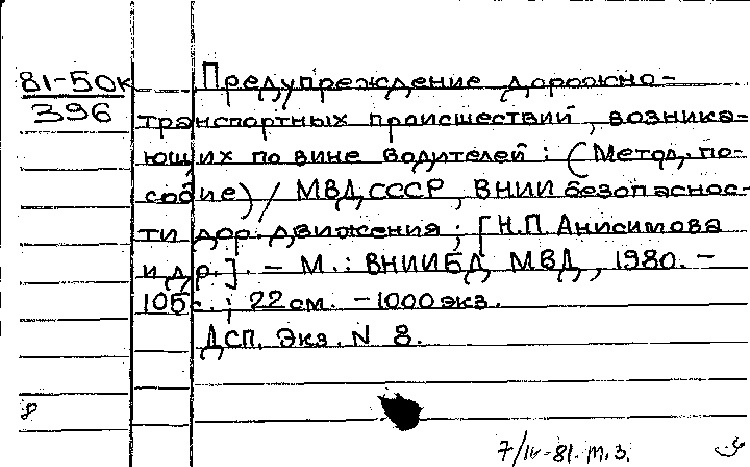 81-50к
396
Предупреждение дорожно-
транспортных происшествий, возника-
ющих по вине водителей: (Метод. по-
собие) / МВД СССР, ВНИИ безопаснос-
ти дор. движения; [Н.П. Анисимова
и др.]. - М.: ВНИИБД МВД, 1980. -
105с.; 22 см. - 1000 экз.
ДСП. Экз. N 8.
8
7/IV-81. т.з.